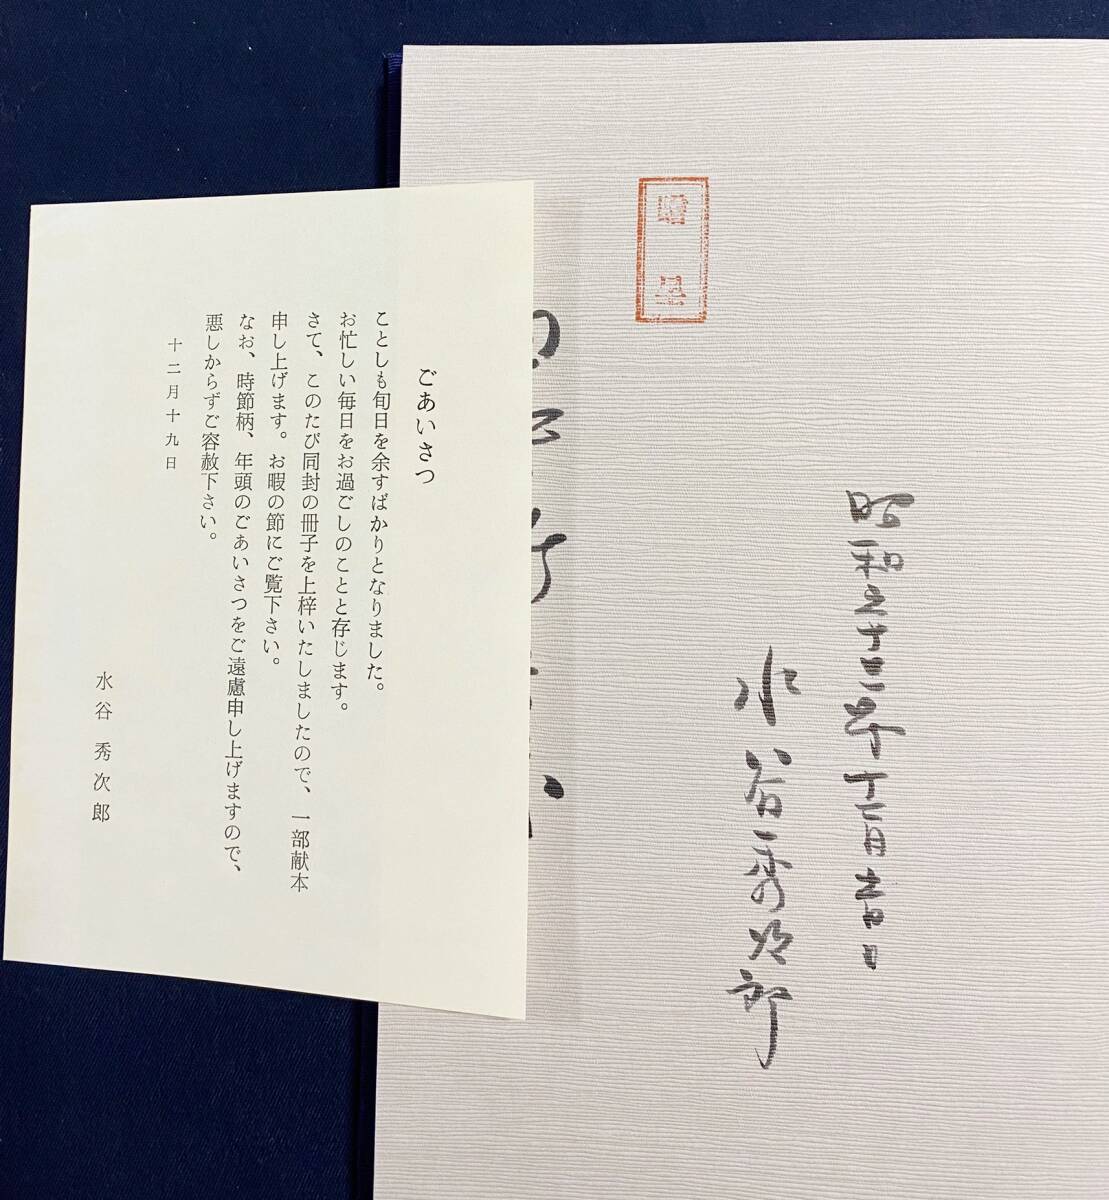 ごあいさつ
ことしも旬日を余すばかりとなりました。
お忙しい毎日をお過ごしのことと存じます。
さて、このたび同封の冊子を上梓いたしましたので、一部献本
申し上げます。お暇の節にご覧下さい。
なお、時節柄、年頭のごあいさつをご遠慮申し上げますので、
悪しからずご容赦下さい。
十二月十九日
水谷秀次郎
贈呈
昭和五十三年十二月吉日
水谷秀次郎